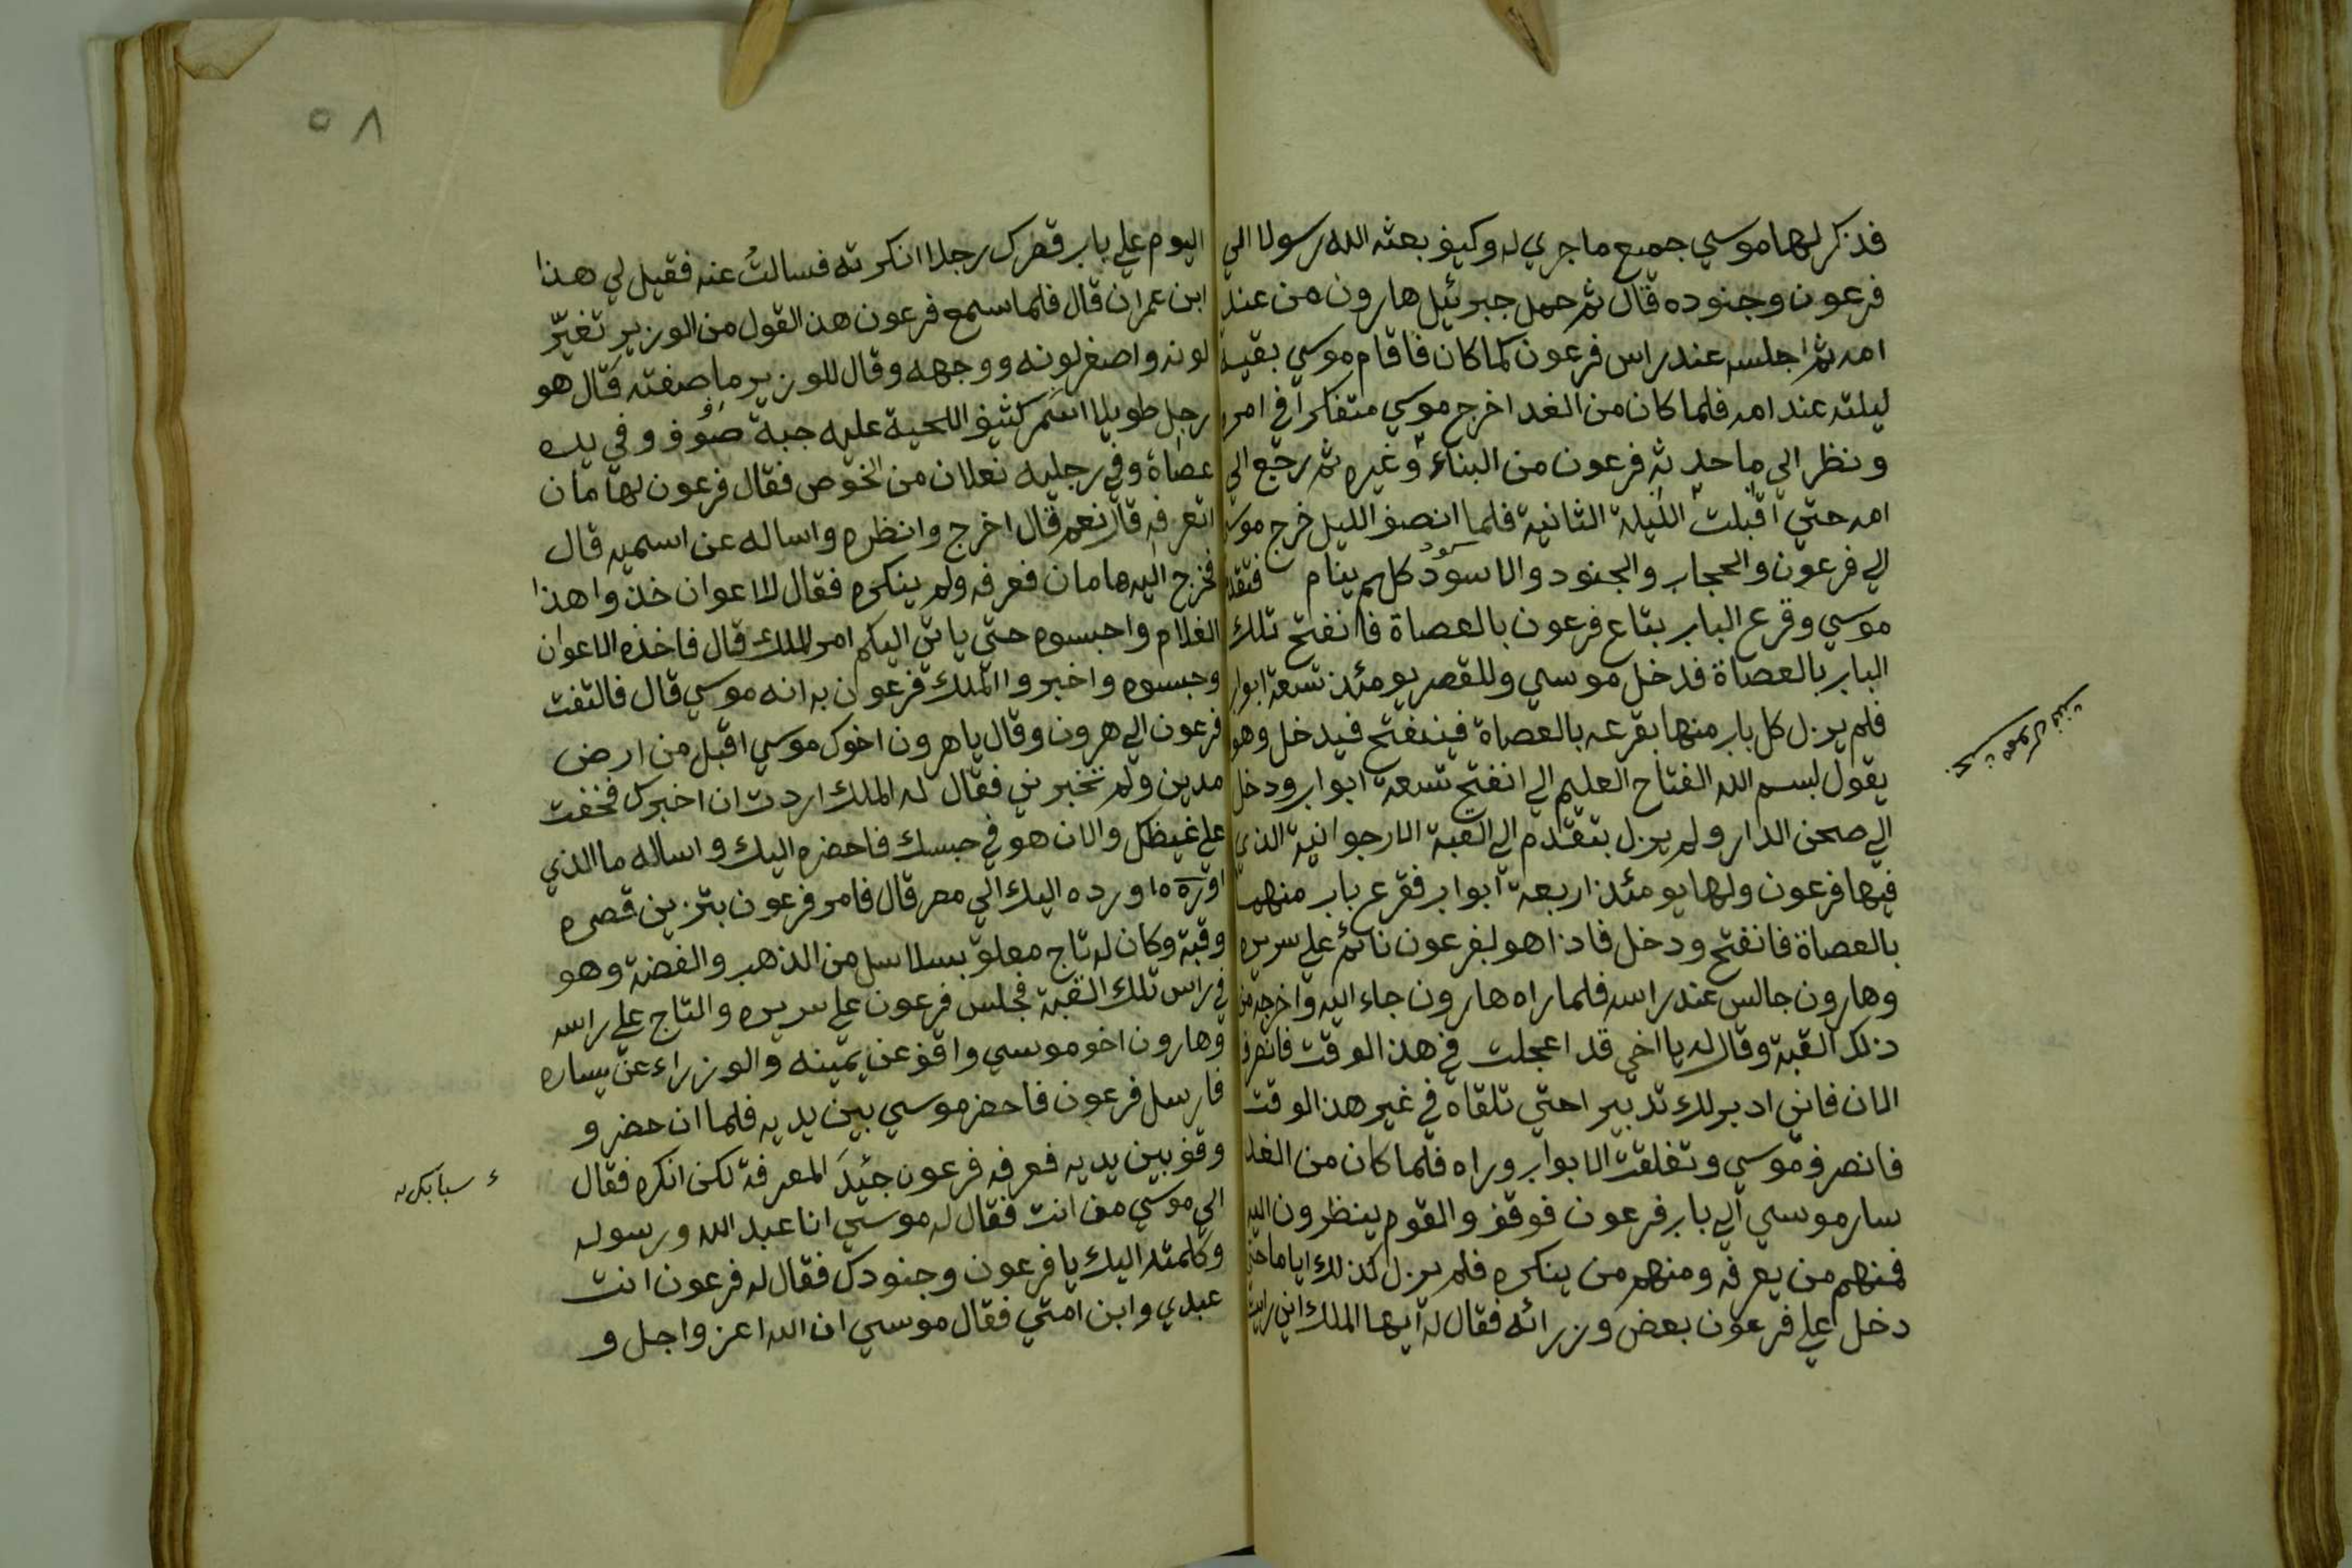 فذكر لها موسي جميع ما جري له وكيف بعثه الله رسولا الي
فرعون وجنوده قال ثم حمل جبرئيل هارون من عند
امه ثم اجلسه عند راس فرعون كما كان فاقام موسي بقية
ليلته عند امه فلما كان من الغد اخرج موسي متفكرا في امره
ونظر الي ما حدثه فرعون من البناء وغيره ثم رجع الي
امه حتي اقبلت الليلة الثانية فلما انصف الليل خرج موسي
الي فرعون والحجاب والجنود والاسود كلهم ينام فتقدم
موسي وقرع الباب بتاع فرعون بالعصاة فانفتح تلك
الباب بالعصاة فدخل موسي وللقصر يومئذ تسعة ابواب
فلم يزل كل باب منها بقرعه بالعصاة فينفتح فيدخل وهو
يقول بسم الله الفتاح العليم الي انفتح تسعة ابواب ودخل
الي صحن الدار ولم يزل بتقدم الي القبة الارجوانية الذي
فيها فرعون ولها يومئذ اربعة ابواب فقرع باب منهما
بالعصاة فانفتح ودخل فاذا هو لفرعون نائم علي سريره
وهارون جالس عند راسه فلما راه هارون جاء اليه واخرجه من
ذلك القبة وقال له يا اخي قد اعجلت في هذا الوقت فانصرف
الان فاني ادبر لك تدبيرا حتي تلقاه في غير هذا الوقت
فانصرف موسي وتغلقت الابواب وراه فلما كان من الغد
سار موسي الي باب فرعون فوقف والقوم ينظرون اليه
فمنهم من يعرفه ومنهم من ينكره فلم يزل كذلك اياما حتي
دخل علي فرعون بعض وزرائه فقال له ايها الملك اني رايت
٥٨
اليوم علي باب قصرك رجلا انكرته فسالتُ عنه فقيل لي هذا
ابن عمران قال فلما سمع فرعون هذا القول من الوزير تغيّر
لونه واصفر لونه ووجهه وقال للوزير ما صفته قال هو
رجل طويلا اسمر كثيف اللحية عليه جبة صوف وفي يده
عصاة وفي رجليه نعلان من الخوص فقال فرعون لهامان
اتعرفه قال نعم قال اخرج وانظره واساله عن اسميه قال
فخرج اليه هامان فعرفه ولم ينكره فقال للاعوان خذوا هذا
الغلام واحبسوه حتي ياتي اليكم امر الملك قال فاخذه الاعوان
وحبسوه واخبروا الملك فرعون به انه موسي قال فالتفت
فرعون الي هرون وقال يا هرون اخوك موسي اقبل من ارض
مدين ولم تخبرني فقال له الملك اردت ان اخبرك فخفت
علي غيظك والان هو في حبسك فاحضره اليك واساله ما الذي
اورده اليك الي مصر قال فامر فرعون بتزين قصره
وقبة وكان له تاج معلق بسلاسل من الذهب والفضة وهو
في راس تلك القبة فجلس فرعون علي سريره والتاج علي راسه
وهارون اخو موسي واقف عن يمينه والوزراء عن يساره
فارسل فرعون فاحضر موسي بين يديه فلما ان حضر و
وقف بين يديه فعرفه فرعون جيّدَ المعرفة لكن انكره فقال
الي موسي من انت فقال له موسي انا عبد الله ورسوله
وكلمته اليك يا فرعون وجنودك فقال له فرعون انت
عبدي وابن امتي فقال موسي ان الله اعز واجل و